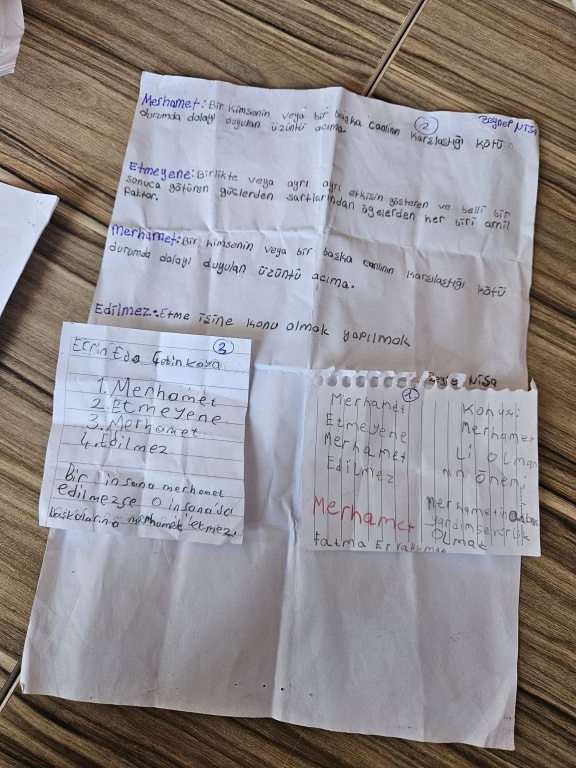 Zeynep Nisa
2
Merhamet: Bir kimsenin veya bir başka canlının karşılaştığı kötü
durumda dolayı duyulan üzüntü acıma.
Etmeyene: Birlikte veya ayrı ayrı etkisin gösteren ve belli bir
sonuca götüren güçlerden şartlarından ögelerden her biri amil
faktör.
Merhamet: Bir kimsenin veya bir başka canlının karşılaştığı kötü
durumda dolayı duyulan üzüntü acıma.
Edilmez: Etme işine konu olmak yapılmak
3
Ecrin Eda Çetinkaya
1. Merhamet
2. Etmeyene
3. Merhamet
4. Edilmez
Bir insana merhamet
edilmezse o insanda
başkalarına merhamet etmez.
1
Nisa
Merhamet
Etmeyene
Merhamet
Edilmez
Merhamet
Fatma
Konusu:
Merhamet
Li Olman
nın önemi
Merhametin
yardımseverlik
Olmak